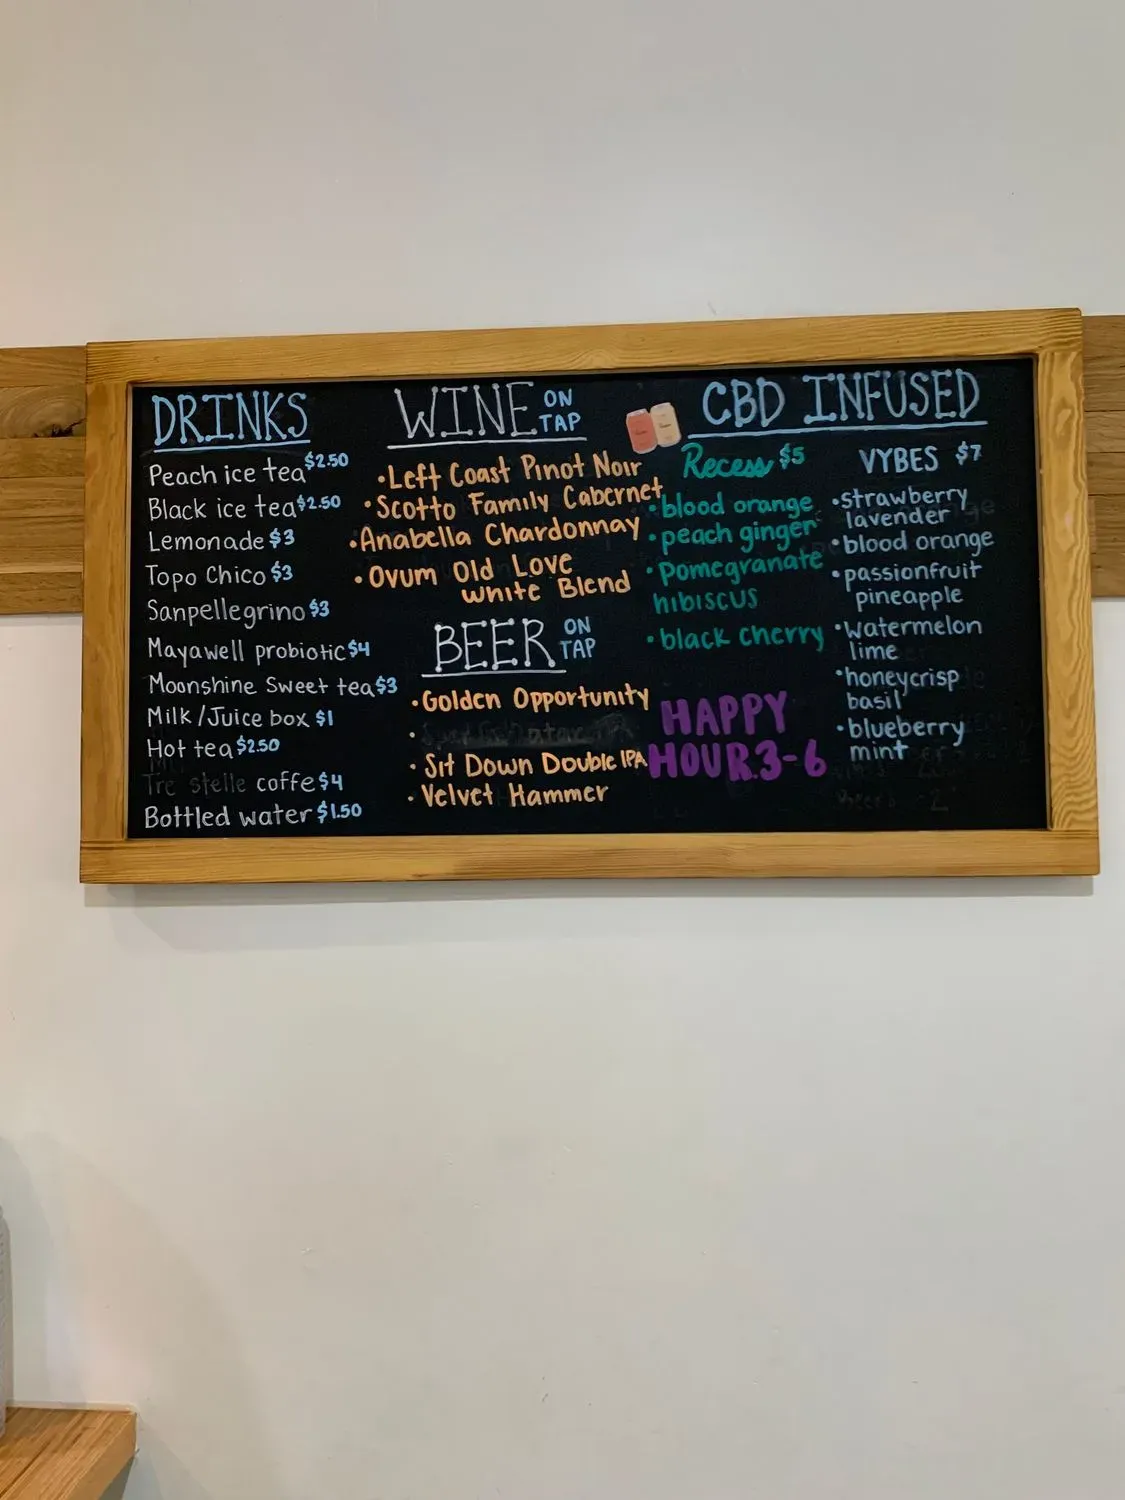 DRINKS
Peach ice tea $2.50
Black ice tea $2.50
Lemonade $3
Topo Chico $3
Sanpellegrino $3
Mayawell probiotic $4
Moonshine Sweet tea $3
Milk/Juice box $1
Hot tea $2.50
Tre stelle coffe $4
Bottled water $1.50
WINE ON TAP
•Left Coast Pinot Noir
•Scotto Family Cabernet
•Anabella Chardonnay
•Ovum Old Love
white Blend
BEER ON TAP
•Golden Opportunity
•
•Sit Down Double IPA
•Velvet Hammer
CBD INFUSED
Recess $5
•blood orange
•peach ginger
•Pomegranate
hibiscus
•black cherry
HAPPY
HOUR 3-6
VYBES $7
•strawberry
lavender
•blood orange
•passionfruit
pineapple
•watermelon
lime
•honeycrisp
basil
•blueberry
mint